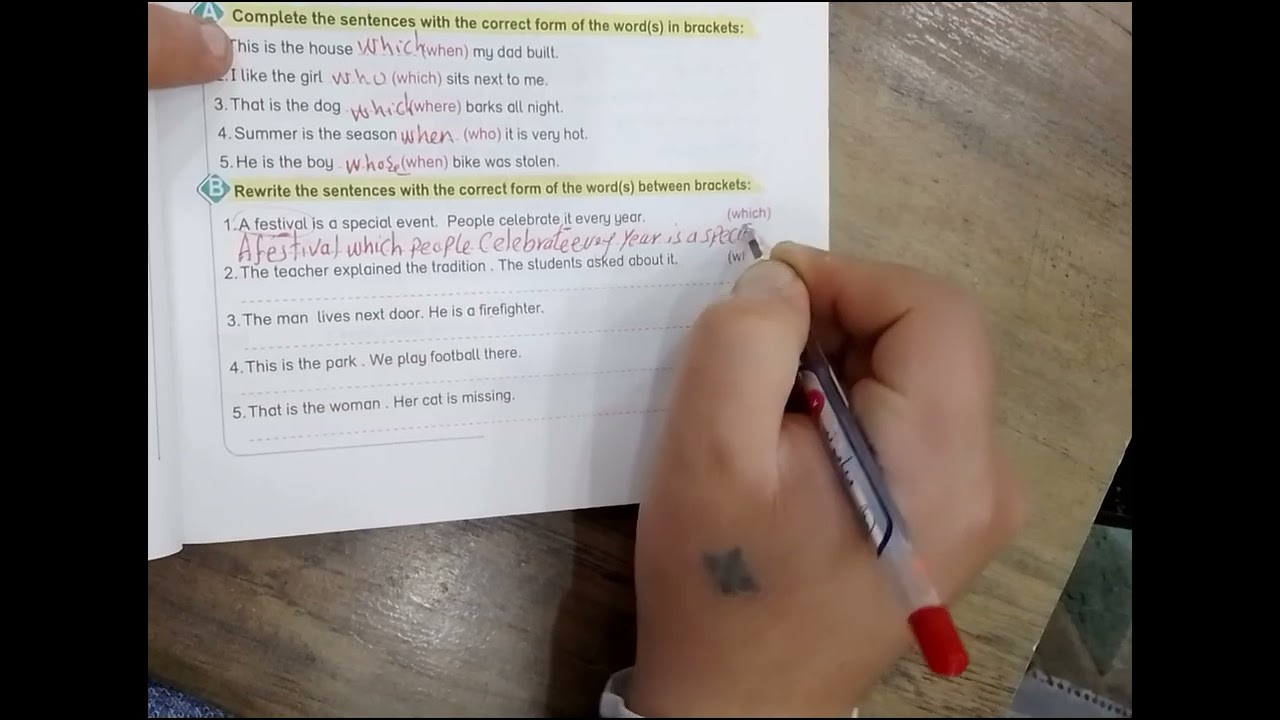 A Complete the sentences with the correct form of the word(s) in brackets:
This is the house which (when) my dad built.
2. I like the girl who (which) sits next to me.
3. That is the dog which (where) barks all night.
4. Summer is the season when (who) it is very hot.
5. He is the boy whose (when) bike was stolen.
B Rewrite the sentences with the correct form of the word(s) between brackets:
1. A festival is a special event. People celebrate it every year. (which)
A festival which people Celebrate every year is a spec
2. The teacher explained the tradition . The students asked about it.
3. The man lives next door. He is a firefighter.
4. This is the park . We play football there.
5. That is the woman . Her cat is missing.